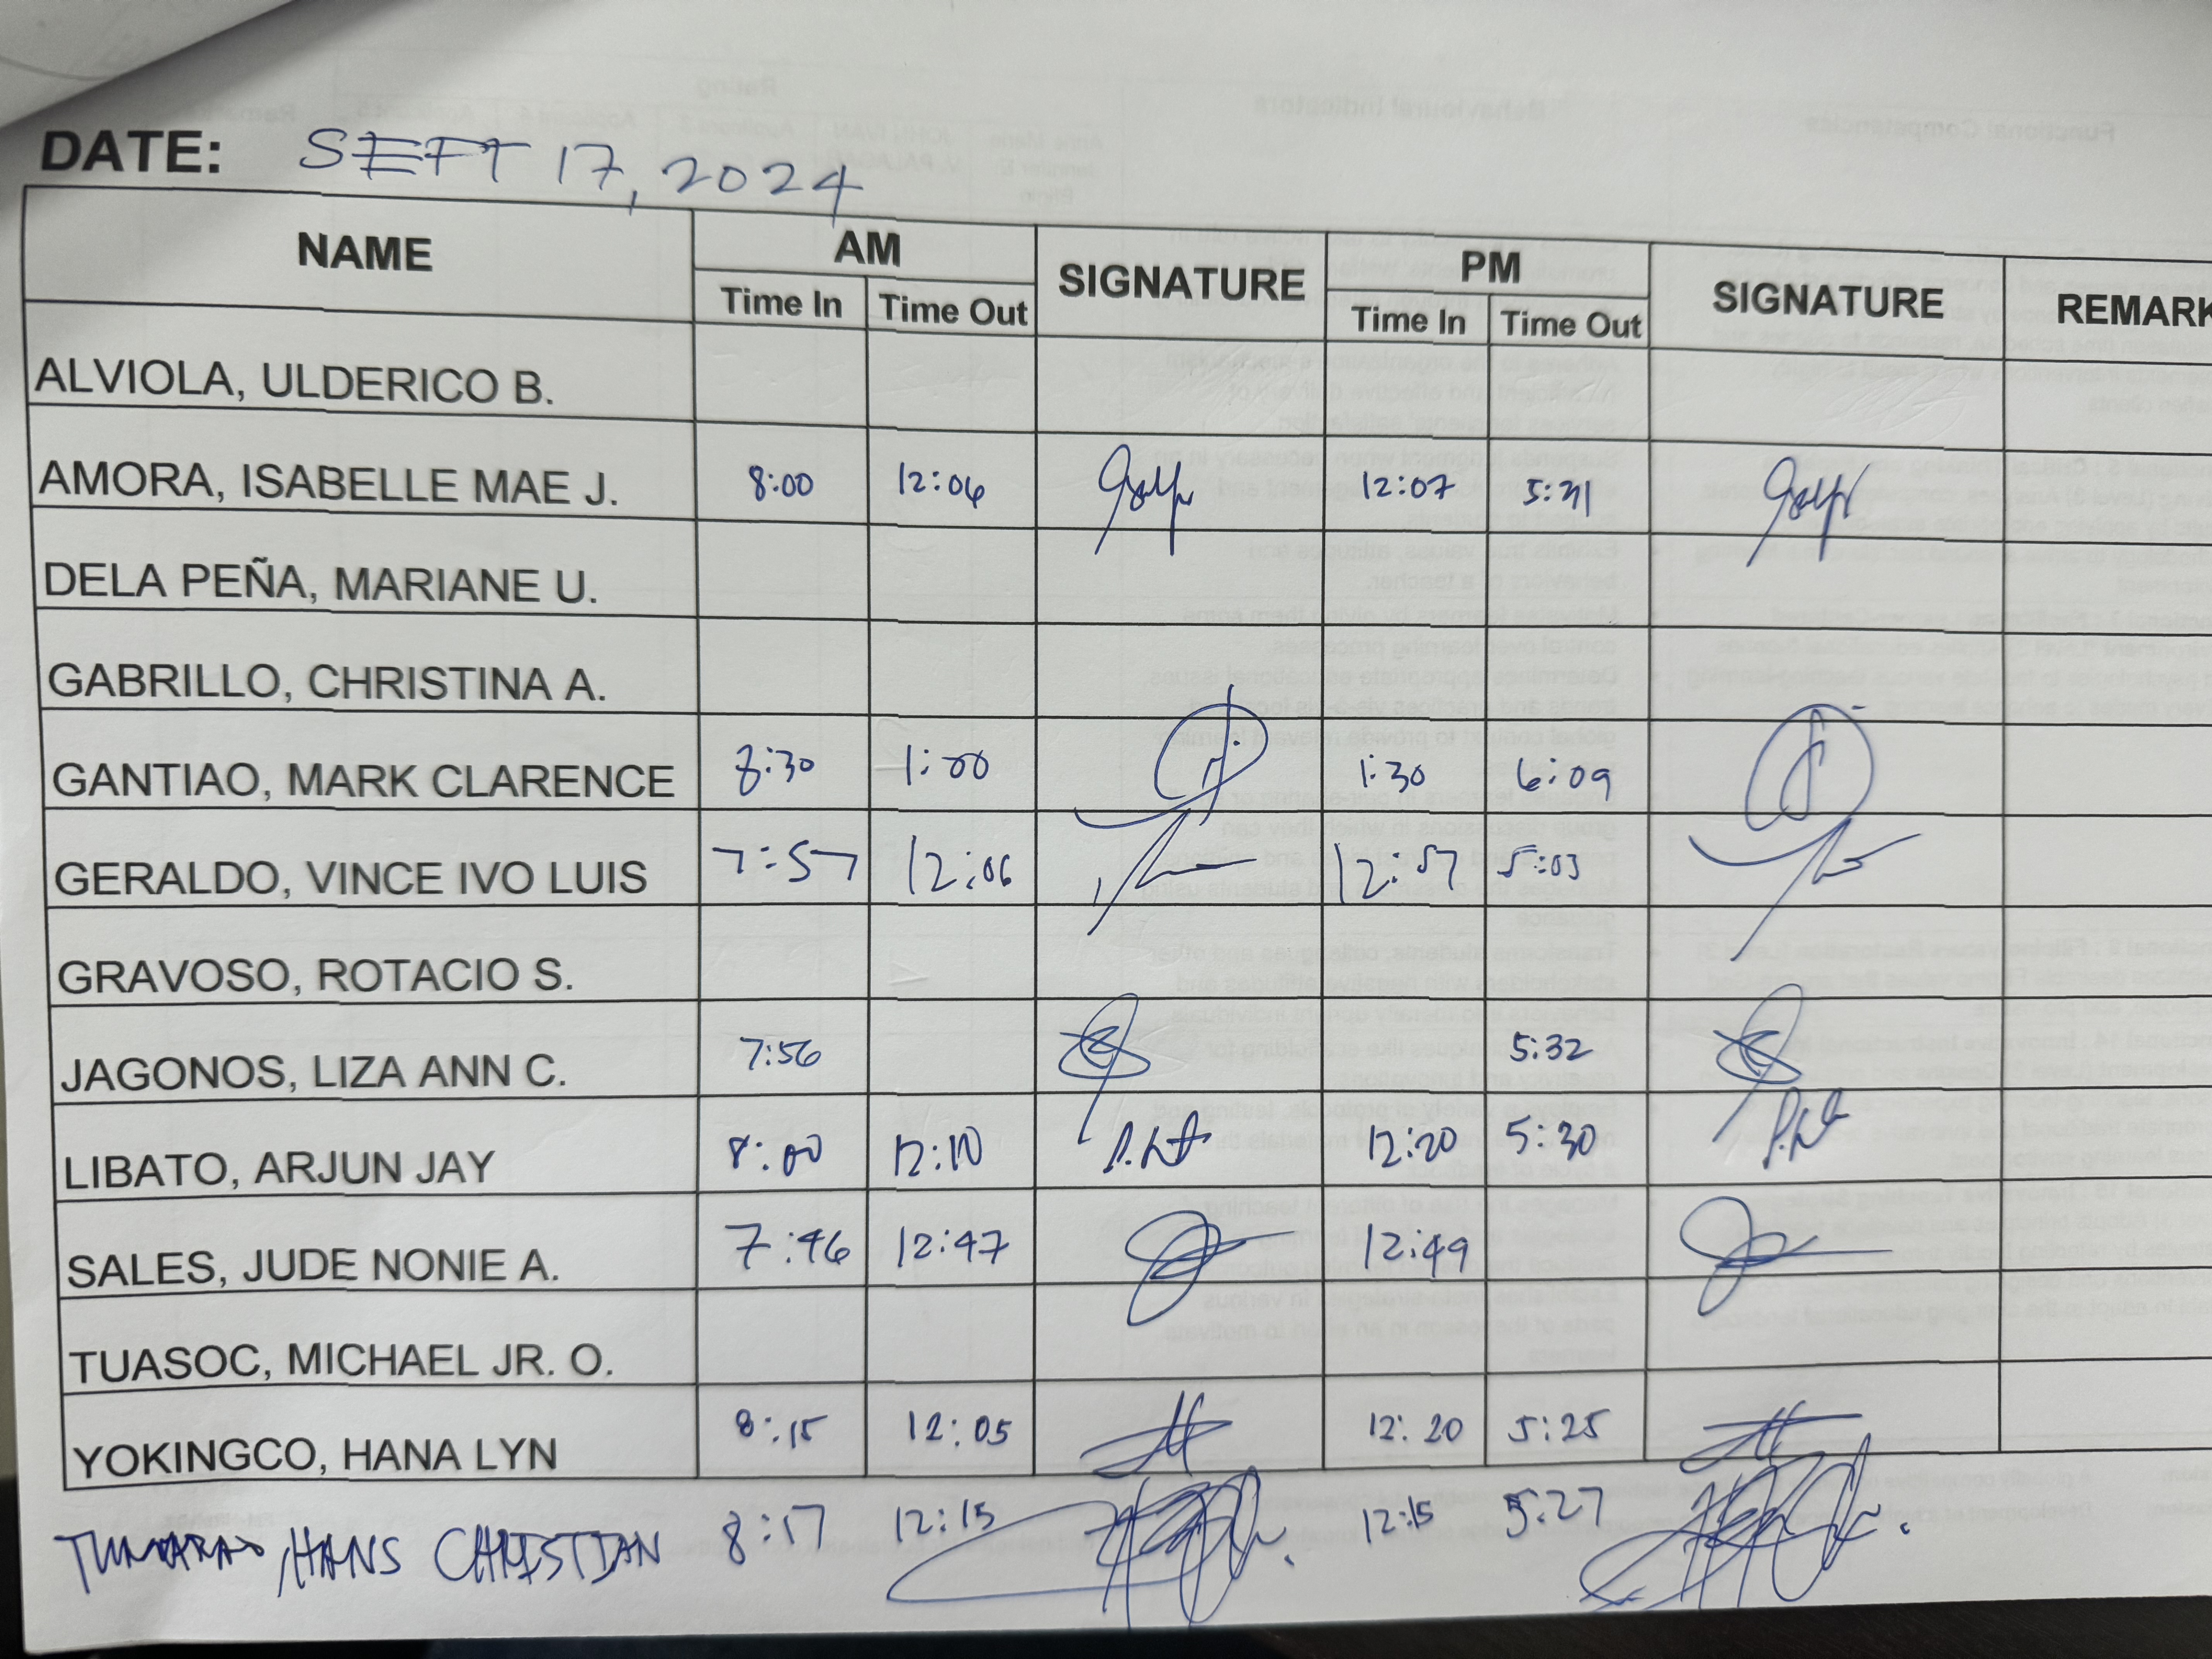 DATE: SEPT 17, 2024
NAME AM SIGNATURE PM SIGNATURE REMARK
Time In Time Out Time In Time Out
ALVIOLA, ULDERICO B.
AMORA, ISABELLE MAE J. 8:00 12:06 12:07 5:31
DELA PEÑA, MARIANE U.
GABRILLO, CHRISTINA A.
GANTIAO, MARK CLARENCE 8:30 1:00 1:30 6:09
GERALDO, VINCE IVO LUIS 7:57 12:06 12:57 5:03
GRAVOSO, ROTACIO S.
JAGONOS, LIZA ANN C. 7:56 5:32
LIBATO, ARJUN JAY 8:00 12:10 12:20 5:30
SALES, JUDE NONIE A. 7:46 12:47 12:49
TUASOC, MICHAEL JR. O.
YOKINGCO, HANA LYN 8:15 12:05 12:20 5:25
HANS CHRISTIAN 8:17 12:15 12:15 5:27